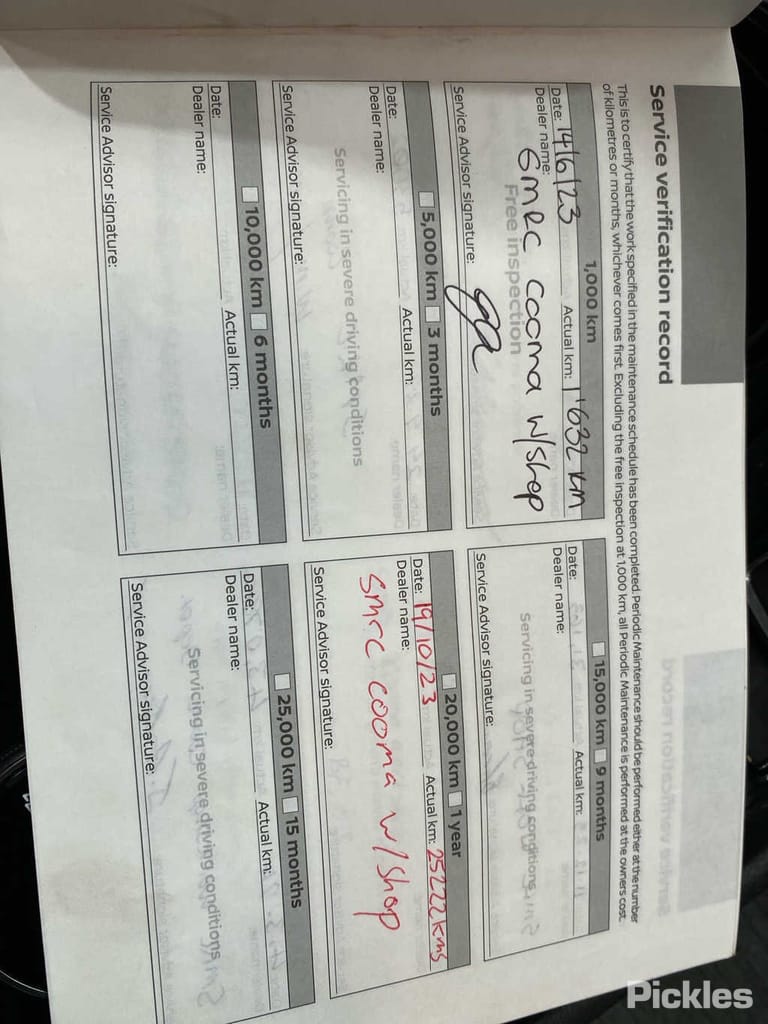 Service verification record
This is to certify that the work specified in the maintenance schedule has been completed. Periodic Maintenance should be performed either at the number
of kilometres or months, whichever comes first. Excluding the free inspection at 1,000 km, all Periodic Maintenance is performed at the owners cost.
1,000 km
Date: 14/6/23 Actual km: 1'632 km
Dealer name: SMRC COOMA W/Shop
Free inspection
Service Advisor signature:
5,000 km 3 months
Date: Actual km:
Dealer name:
Servicing in severe driving conditions
Service Advisor signature:
10,000 km 6 months
Date: Actual km:
Dealer name:
Service Advisor signature:
15,000 km 9 months
Date: Actual km:
Dealer name:
Servicing in severe driving conditions
Service Advisor signature:
20,000 km 1 year
Date: 19/10/23 Actual km: 25222 kms
Dealer name:
SMRC COOMA W/Shop
Service Advisor signature:
25,000 km 15 months
Date: Actual km:
Dealer name:
Servicing in severe driving conditions
Service Advisor signature:
Pickles